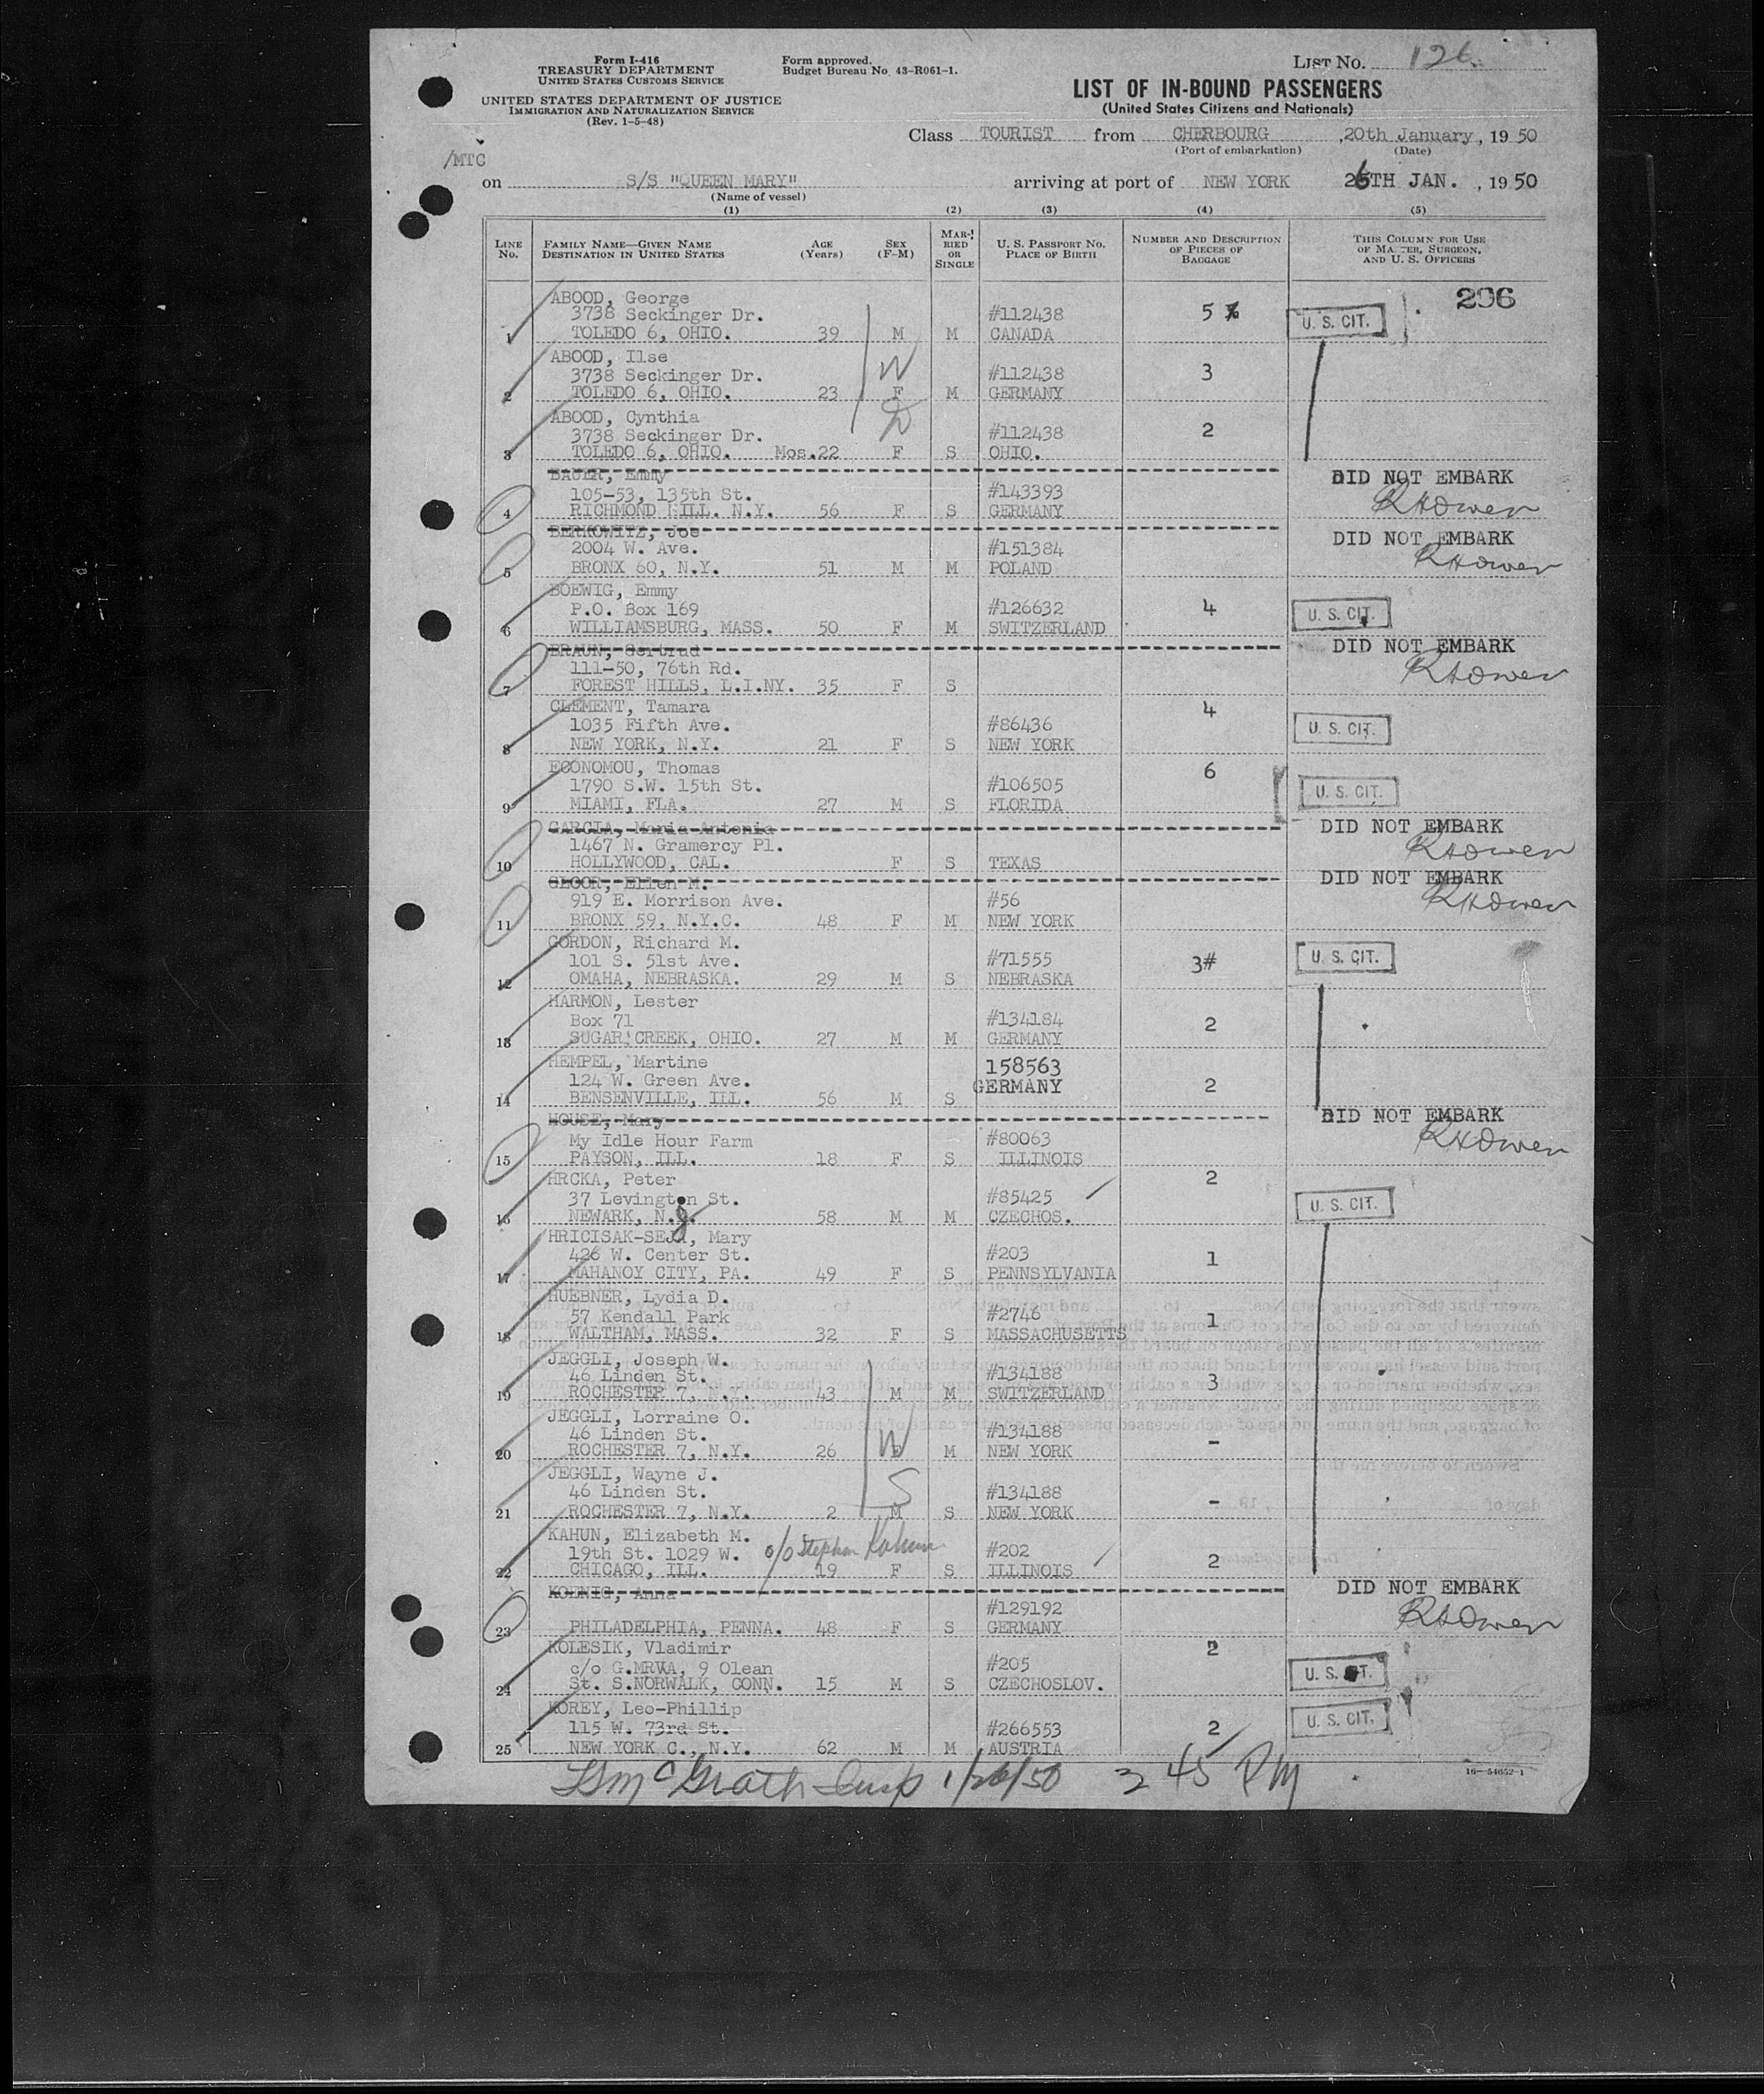 Form I-416
TREASURY DEPARTMENT
UNITED STATES CUSTOMS SERVICE
UNITED STATES DEPARTMENT OF JUSTICE
IMMIGRATION AND NATURALIZATION SERVICE
(Rev. 1-5-48)
Form approved.
Budget Bureau No. 43-R061-1.
LIST NO. 126
LIST OF IN-BOUND PASSENGERS
(United States Citizens and Nationals)
Class TOURIST from CHERBOURG ,20th January, 19 50
(Port of embarkation) (Date)
/MTC
on S/S "QUEEN MARY" arriving at port of NEW YORK 26TH JAN. , 19 50
(Name of vessel)
(1) (2) (3) (4) (5)
LINE No. FAMILY NAME—GIVEN NAME DESTINATION IN UNITED STATES AGE (Years) SEX (F-M) MARRIED OR SINGLE U. S. PASSPORT NO. PLACE OF BIRTH NUMBER AND DESCRIPTION OF PIECES OF BAGGAGE THIS COLUMN FOR USE OF MASTER, SURGEON, AND U. S. OFFICERS
206
ABOOD, George
3738 Seckinger Dr. #112438 5 U. S. CIT.
1 TOLEDO 6, OHIO. 39 M M CANADA
ABOOD, Ilse
3738 Seckinger Dr. W #112438 3
2 TOLEDO 6, OHIO. 23 F M GERMANY
ABOOD, Cynthia D
3738 Seckinger Dr. #112438 2
3 TOLEDO 6, OHIO. Mos.22 F S OHIO.
BAUER, Emmy DID NOT EMBARK
105-53, 135th St. #143393 RHOwen
4 RICHMOND HILL. N.Y. 56 F S GERMANY
BERKOWITZ, Joe DID NOT EMBARK
2004 W. Ave. #151384 RHOwen
5 BRONX 60, N.Y. 51 M M POLAND
BOEWIG, Emmy
P.O. Box 169 #126632 4 U. S. CIT.
6 WILLIAMSBURG, MASS. 50 F M SWITZERLAND
BRAUN, Gertrud DID NOT EMBARK
111-50, 76th Rd. RHOwen
7 FOREST HILLS, L.I.NY. 35 F S
CLEMENT, Tamara 4
1035 Fifth Ave. #86436 U. S. CIT.
8 NEW YORK, N.Y. 21 F S NEW YORK
ECONOMOU, Thomas 6
1790 S.W. 15th St. #106505 U. S. CIT.
9 MIAMI, FLA. 27 M S FLORIDA
GARCIA, Maria Antonia DID NOT EMBARK
1467 N. Gramercy Pl. RHOwen
10 HOLLYWOOD, CAL. F S TEXAS
GLOOR, Ellen M. DID NOT EMBARK
919 E. Morrison Ave. #56 RHOwen
11 BRONX 59, N.Y.C. 48 F M NEW YORK
GORDON, Richard M.
101 S. 51st Ave. #71555 3# U. S. CIT.
12 OMAHA, NEBRASKA. 29 M S NEBRASKA
HARMON, Lester
Box 71 #134184 2
13 SUGAR CREEK, OHIO. 27 M M GERMANY
HEMPEL, Martine 158563
124 W. Green Ave. GERMANY 2
14 BENSENVILLE, ILL. 56 M S
HOUSE, Mary DID NOT EMBARK
My Idle Hour Farm #80063 RHOwen
15 PAYSON, ILL. 18 F S ILLINOIS
HRCKA, Peter 2
37 Levington St. #85425 U. S. CIT.
16 NEWARK, N.J. 58 M M CZECHOS.
HRICISAK-SEJA, Mary
426 W. Center St. #203 1
17 MAHANOY CITY, PA. 49 F S PENNSYLVANIA
HUEBNER, Lydia D.
57 Kendall Park #2746 1
18 WALTHAM, MASS. 32 F S MASSACHUSETTS
JEGGLI, Joseph W.
46 Linden St. #134188 3
19 ROCHESTER 7, N.Y. 43 M M SWITZERLAND
JEGGLI, Lorraine O.
46 Linden St. W #134188 -
20 ROCHESTER 7, N.Y. 26 F M NEW YORK
JEGGLI, Wayne J.
46 Linden St. S #134188 -
21 ROCHESTER 7, N.Y. 2 M S NEW YORK
KAHUN, Elizabeth M. c/o Stephen Kahun
19th St. 1029 W. #202 2
22 CHICAGO, ILL. 19 F S ILLINOIS
KOENIG, Anna DID NOT EMBARK
#129192 RHOwen
23 PHILADELPHIA, PENNA. 48 F S GERMANY
KOLESIK, Vladimir 2
c/o G.MRVA, 9 Olean #205 U. S. CIT.
24 St. S.NORWALK, CONN. 15 M S CZECHOSLOV.
KOREY, Leo-Phillip
115 W. 73rd St. #266553 2 U. S. CIT.
25 NEW YORK C., N.Y. 62 M M AUSTRIA
McGrath Insp 1/26/50 2 45 PM
16—54652-1